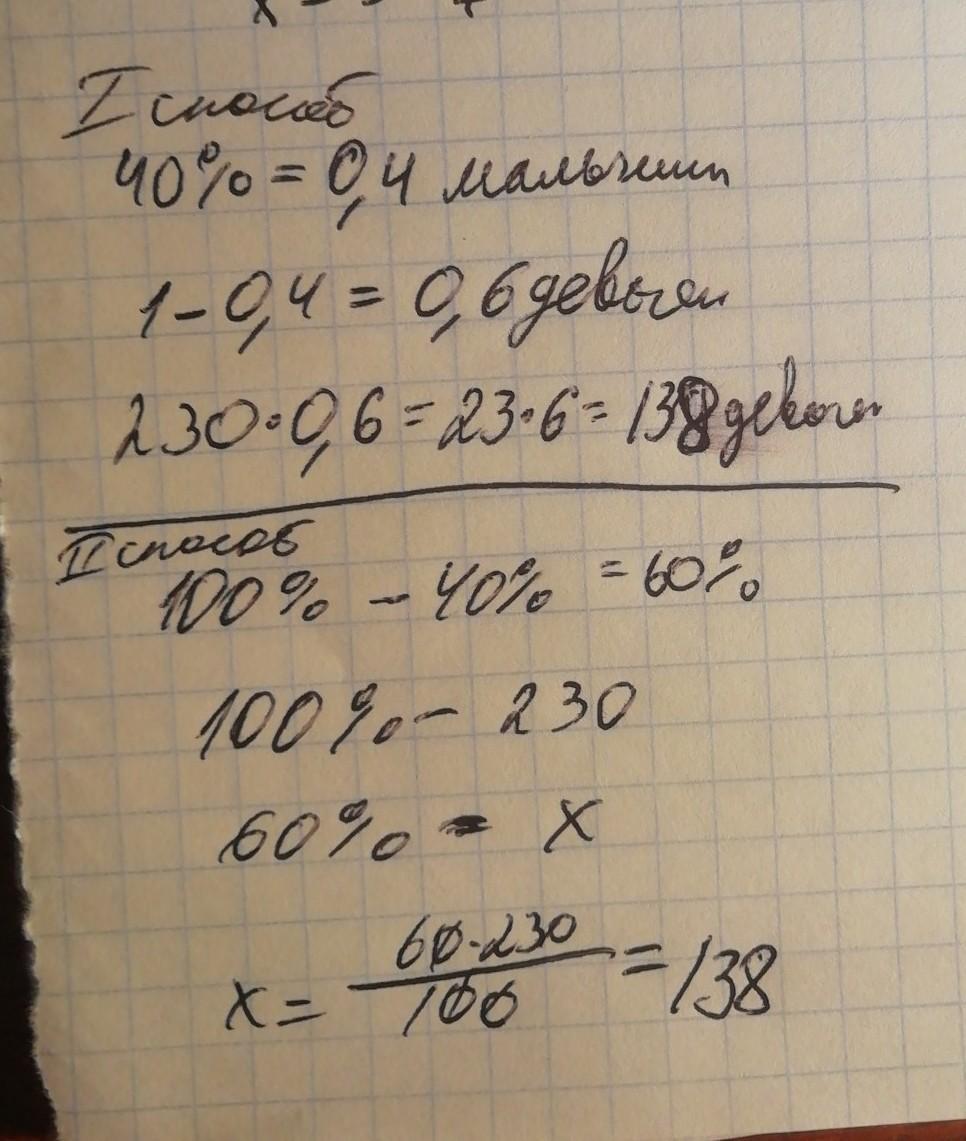 I способ
40% = 0,4 мальчики
1 - 0,4 = 0,6 девочки
230 · 0,6 = 23 · 6 = 138 девочки
II способ
100% - 40% = 60%
100% - 230
60% - x
x = 60·230/100 = 138